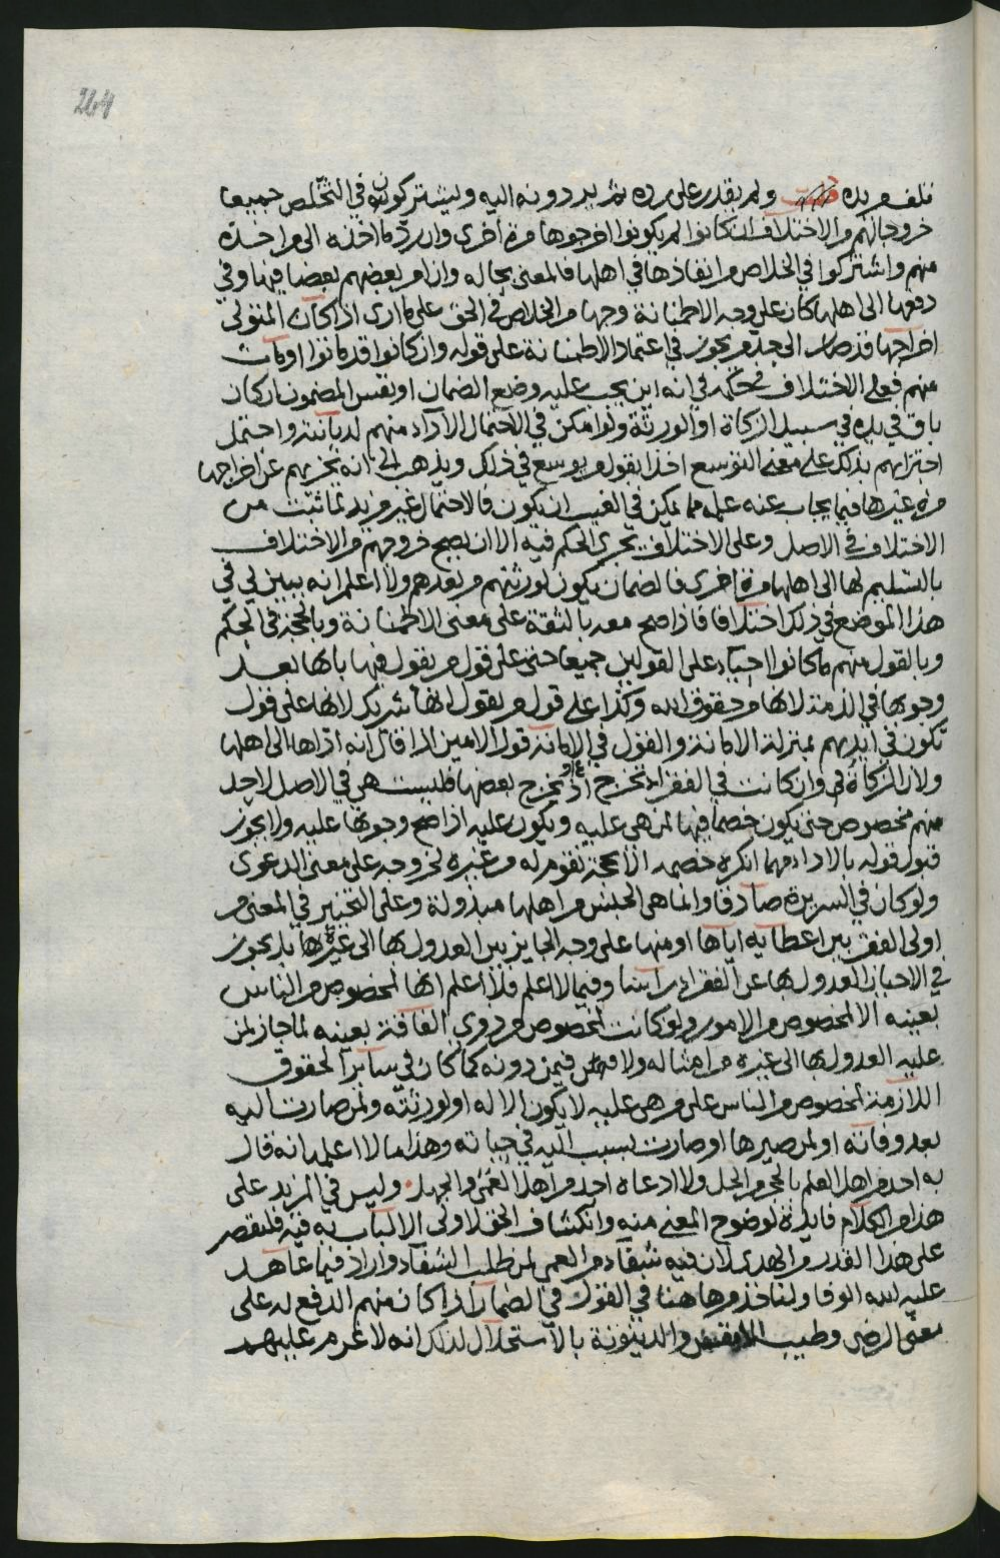 264
تلف من يده قلت ولم يقدر على رده ثم يردونه اليه ويشتركون في التخلص جميعا
خروجا لهم من الاختلاف ان كانوا لم يكونوا اخرجوها مرة اخرى وان رد ما اخذه الى من اخذه
منهم واشتركوا في الخلاص من انفاذها في اهلها فالمعنى بحاله وان امر بعضهم بعضا فيها وفي
دفعها الى اهلها كان على وجه الاطمنانة وجها من الخلاص في الحق على ما ارى اذا كان المتولي
اخراجها قد صار الى حد من يجوز في اعتماد الاطمنانة على قوله وان كانوا قد ماتوا او مات
منهم فعلى الاختلاف نحكمه في انه اين يجب عليه وضع الضمان او نفس المضمون ان كان
باق في يده في سبيل الزكاة او الورثة ولو امكن في الاحتمال الآداء منهم لديانته واحتمل
اجتزاهم بذلك على معنى التوسع اخذا بقول من يوسع في ذلك ويذهب الى انه يجزيهم عن اخراجها
مرة غيرها فيما يجاب عنه علمه مما يمكن في الغيب ان يكون فالاحتمال غير مزيد لما ثبت من
الاختلاف في الاصل وعلى الاختلاف يجري الحكم فيه الا ان يصح خروجهم من الاختلاف
بالتسليم لها الى اهلها مرة اخرى فالضمان يكون لورثتهم من بعدهم ولا اعلم انه يبين لي في
هذا الموضع في ذلك اختلافا فاذا صح معه بالثقة على معنى الاطمنانة وبالحجة في الحكم
وبالقول منهم ما كانوا احياء على القولين جميعا حتى على قول من يقول فيها بانها بعد
وجوبها في الذمة لانها من حقوق الله وكذا على قول من يقول انها شريك لانها على قول
تكون في ايديهم بمنزلة الامانة والقول في الامانة قول الامين اذا قال انه اداها الى اهلها
ولان الزكاة وان كانت في الفقراء تخرج او يخرج بعضها فليست هي في الاصل لاحد
منهم مخصوص حتى يكون خصما فيها لمن هي عليه ويكون عليه اذا صح وجوبها عليه ولا يجوز
قبول قوله بالاداء مهما انكره خصمه الا بحجة تقوم له من غيره لخروجه على معنى الدعوى
ولو كان في السريرة صادقا وانما هي لجنس من اهلها مبذولة وعلى التخيير في المعنى من
اولى الفقر بين اعطايه اياها او منها على وجه الجايز بين العدول بها الى غيرها بل يجوز
في الاحيان العدول بها عن الفقراء راسا وفيما لا اعلم فلا اعلم انها لمخصوص من الناس
بعينه الا لمخصوص من الامور ولو كانت لمخصوص من ذوي الفاقة بعينه لما جاز لمن
عليه العدول بها الى غيره من امثاله ولا فيمن دونه كما كان في ساير الحقوق
اللازمة لمخصوص من الناس على من هي عليه لا يكون الا له او لورثته ولمن صارت اليه
بعد وفاته او لمن صيرها او صارت بسبب اليه في حياته وهذا ما لا اعلم انه قال
به احد من اهل العلم بالحجر والحل ولا ادعاه احد من اهل العمى والجهل وليس في المزيد على
هذا من الكلام فايدة لوضوح المعنى منه وانكشاف الحق لاولى الالباب به فيه فليقصر
على هذا القدر من الهدى لان فيه شفاء من العمى لمن طلب الشفاء واراد فيما عاهد
عليه الله الوفا ولناخذ من هاهنا في القول في الضمان اذا كان منهم الدفع له على
معنى الرضى وطيب النفس والدينونة بالاستحلال لذلك انه لا غرم عليهم